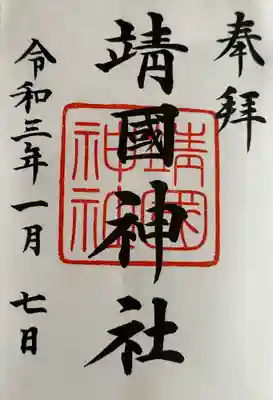 奉拝
靖國神社
靖国
神社
令和三年一月七日